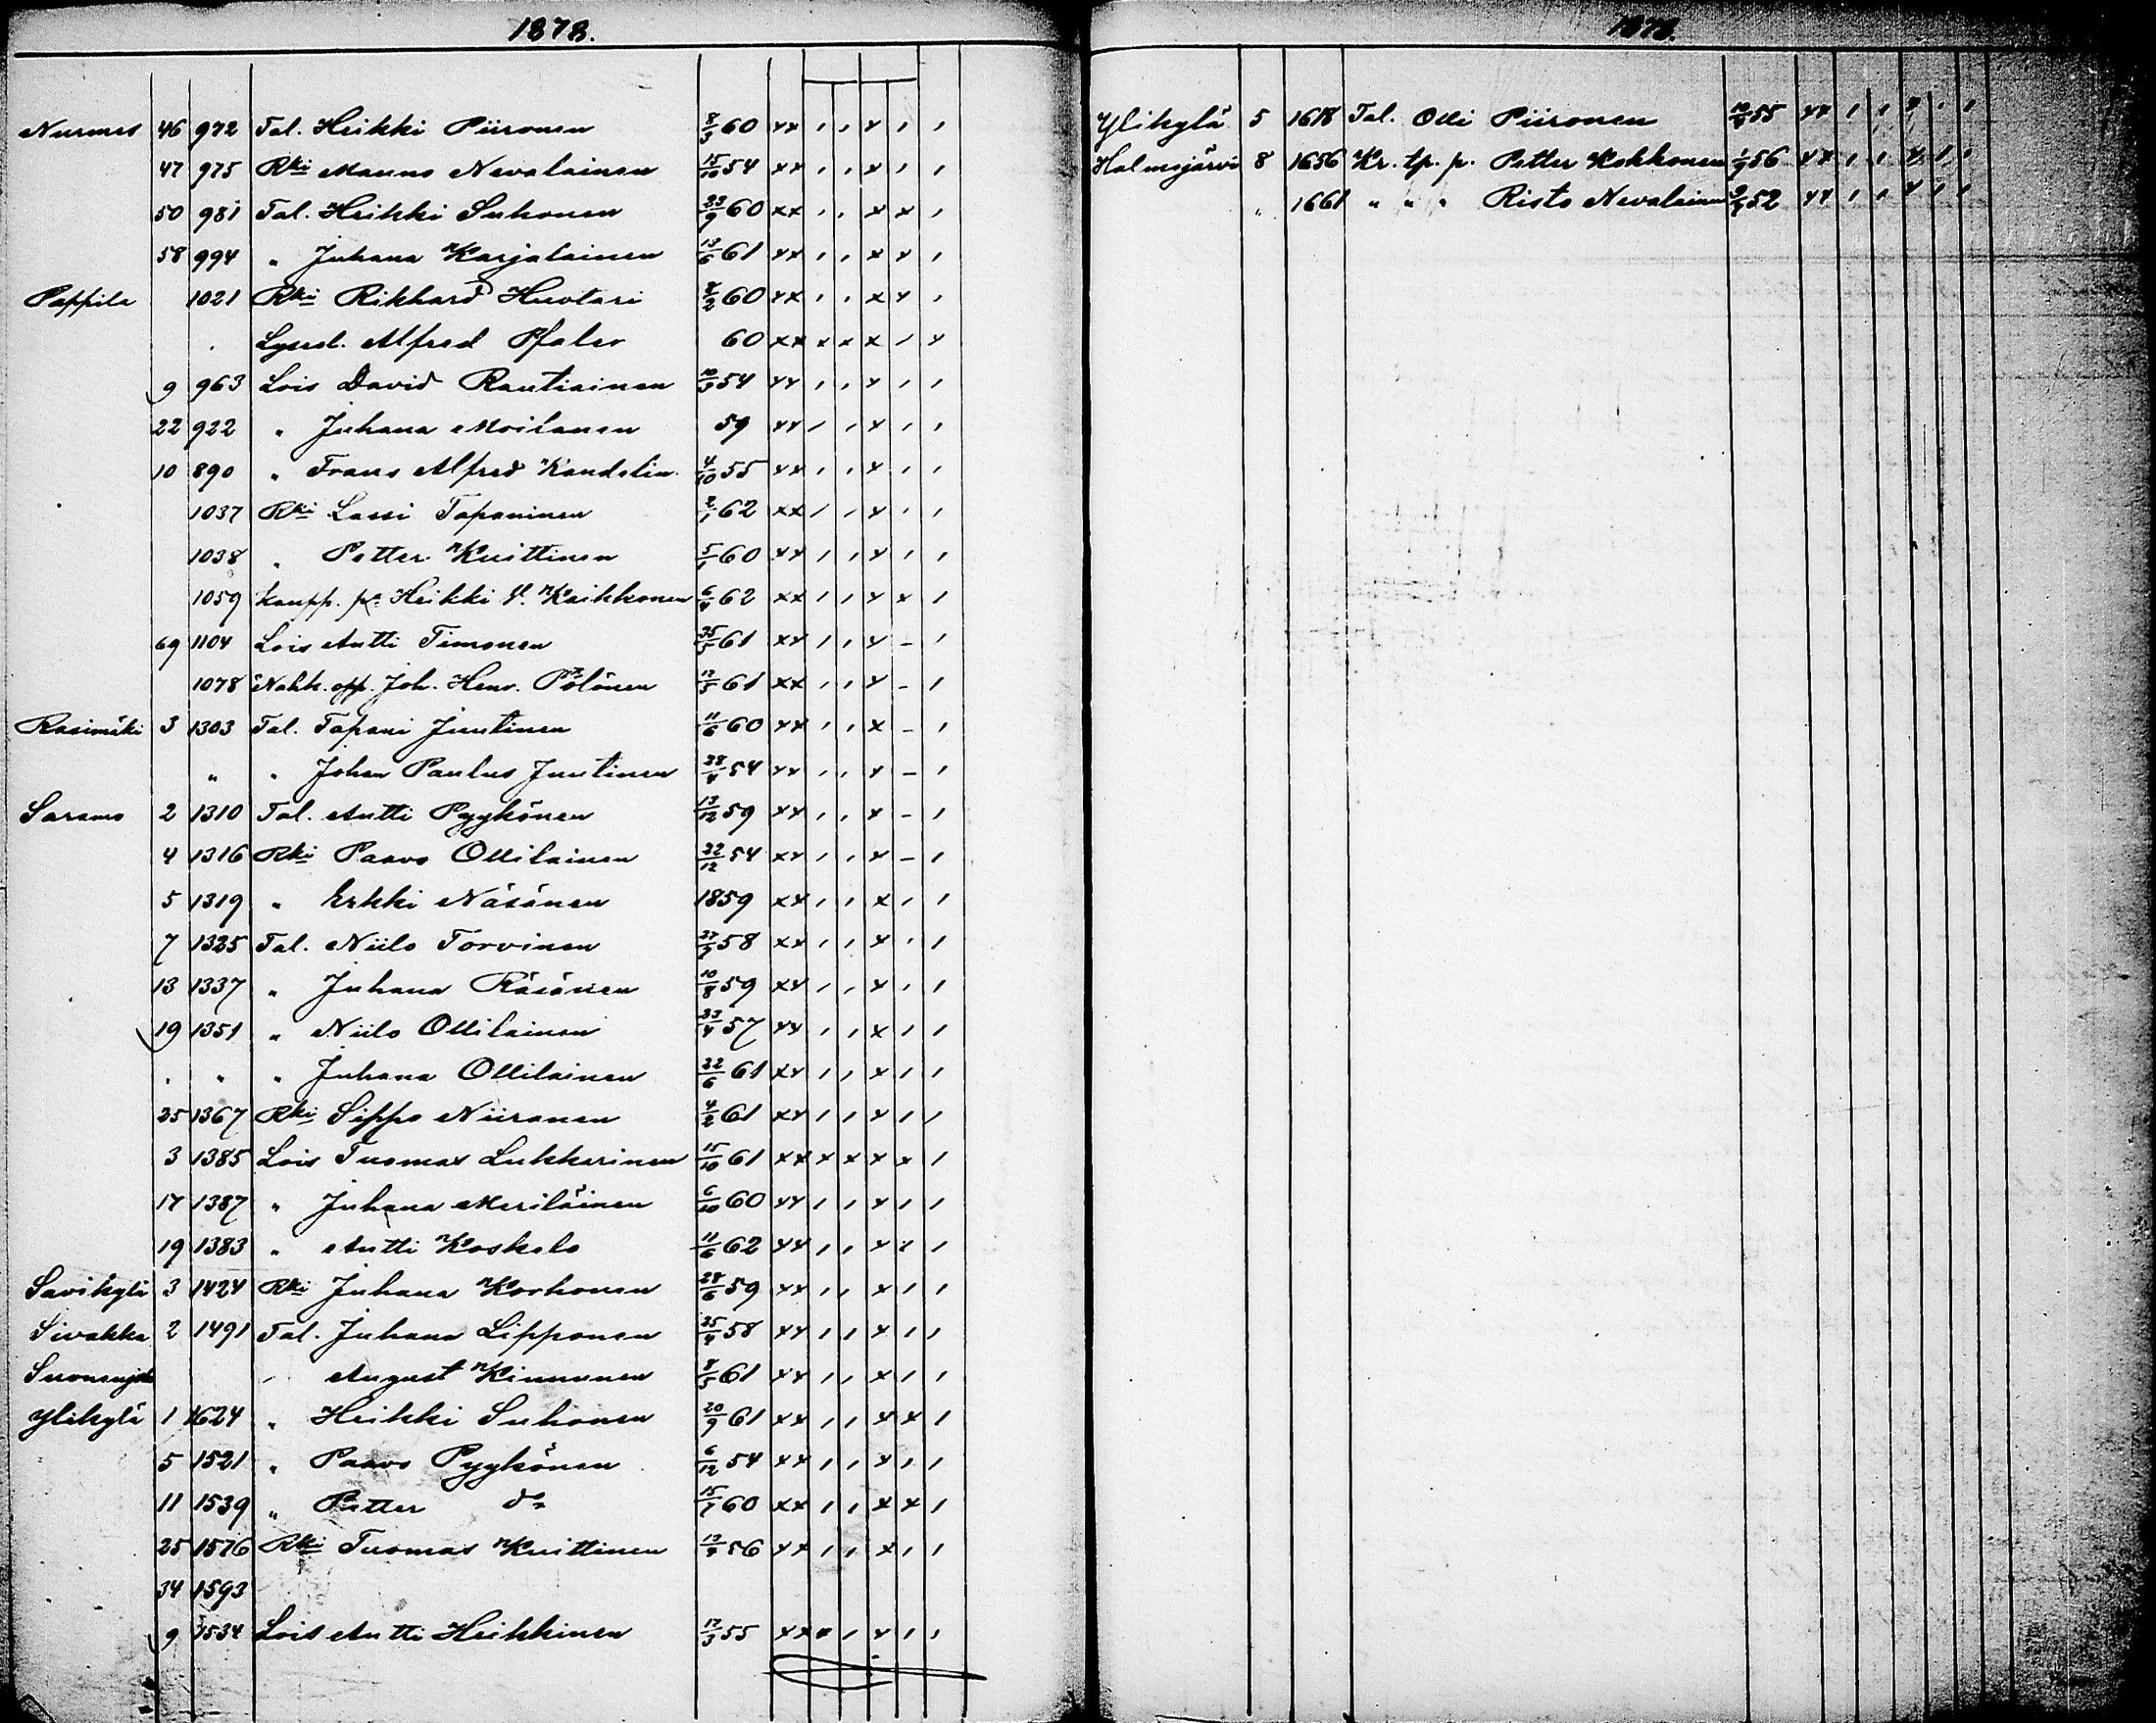 1878.
Nurmes 46 972 Tal. Heikki Piironen 8/3 60 x x ı ı x ı ı
47 975 Rki Mauno Nevalainen 15/10 54 x x ı ı x ı ı
50 981 Tal. Heikki Suhonen 23/9 60 x x ı ı x x ı
58 994 " Juhana Karjalainen 13/6 61 x x ı ı x x ı
Pappila 1021 Rki Rikhard Huotari 60 x x ı ı x x ı
Alfred Pfaler 60 x x x x x ı x
9 963 Lois David Rautiainen 54 x x ı ı x ı ı
22 922 " Juhana Moilanen 59 x x ı ı x ı ı
10 890 " Frans Alfred Kandelin 4/10 55 x x ı ı x ı ı
1037 Rki Lassi Tapaninen 2/1 62 x x ı ı x ı ı
1038 " Petter Kuittinen 5/1 60 x x ı ı x ı ı
1059 Kaupp. p. Heikki V. Kaikkonen 62 x x ı ı x x ı
69 1104 Lois Antti Timonen 61 x x ı ı x – ı
1078 Nahk. opp. Joh. Henr. Pölönen 61 x x ı ı x – ı
Rasimäki 3 1303 Tal. Tapani Juutinen 11/6 60 x x ı ı x – ı
" " Johan Paulus Juutinen 54 x x ı ı x – ı
Saramo 2 1310 Tal. Antti Pyykönen 13/12 59 x x ı ı x – ı
4 1316 Rki Paavo Ollilainen 22/12 54 x x ı ı x – ı
5 1319 " Erkki Näsänen 1859 x x ı ı x ı ı
7 1325 Tal. Niilo Torvinen 58 x x ı ı x ı ı
13 1337 " Juhana Räsänen 10/8 59 x x ı ı x ı ı
19 1351 " Niilo Ollilainen 23/4 57 x x ı ı x ı ı
" " " Juhana Ollilainen 22/6 61 x x ı ı x ı ı
25 1367 Rki Sippo Niiranen 4/2 61 x x ı ı x ı ı
3 1385 Lois Tuomas Lukkarinen 15/10 61 x x x x x x ı
17 1387 " Juhana Meriläinen 6/10 60 x x ı ı x ı ı
19 1383 " Antti Koskelo 11/6 62 x x ı ı x x ı
Savikylä 3 1424 Rki Juhana Korhonen 28/6 59 x x ı ı x ı ı
Sivakka 2 1491 Tal. Juhana Lipponen 25/4 58 x x ı ı x ı ı
August Kinnunen 8/5 61 x x ı ı x ı ı
Ylikylä 1 1624 " Heikki Suhonen 20/9 61 x x ı ı x x ı
5 1521 " Paavo Pyykönen 6/12 54 x x ı ı x ı ı
11 1539 " Petter d:o 60 x x ı ı x x ı
25 1576 Rki Tuomas Kuittinen 56 x x ı ı x ı ı
34 1593
9 1534 Lois Antti Heikkinen 17/3 55 x x x ı x ı ı
1878.
Ylikylä 5 1618 Tal. Olli Piironen 55 x x ı ı x ı ı
Halmejärvi 8 1656 Kr. tp. p. Petter Kokkonen 56 x x ı ı x ı ı
" 1661 " " " Risto Nevalainen 52 x x ı ı x ı ı